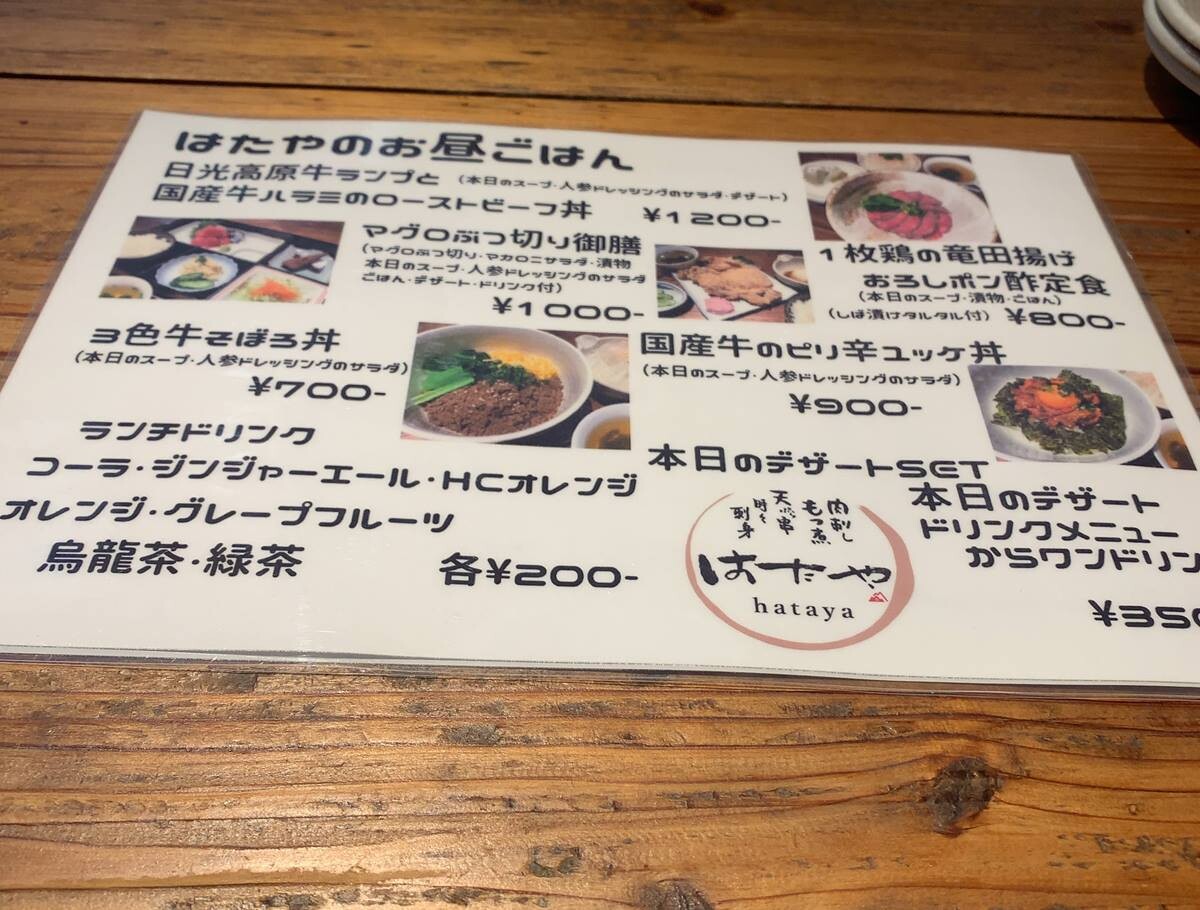 はたやのお昼ごはん
日光高原牛ランプと (本日のスープ・人参ドレッシングのサラダ・デザート)
国産牛ハラミのローストビーフ丼 ¥1200-
マグロぶつ切り御膳
(マグロぶつ切り・マカロニサラダ・漬物
本日のスープ・人参ドレッシングのサラダ
ごはん・デザート・ドリンク付)
¥1000-
1枚鶏の竜田揚げ
おろしポン酢定食
(本日のスープ・漬物・ごはん)
(しば漬けタルタル付) ¥800-
3色牛そぼろ丼
(本日のスープ・人参ドレッシングのサラダ)
¥700-
国産牛のピリ辛ユッケ丼
(本日のスープ・人参ドレッシングのサラダ)
¥900-
ランチドリンク
コーラ・ジンジャーエール・HCオレンジ
オレンジ・グレープフルーツ
烏龍茶・緑茶 各¥200-
本日のデザートSET
本日のデザート
ドリンクメニュー
からワンドリン
¥350
肉刺し
もつ煮
天ぷら串
時々
刺身
はたや
hataya